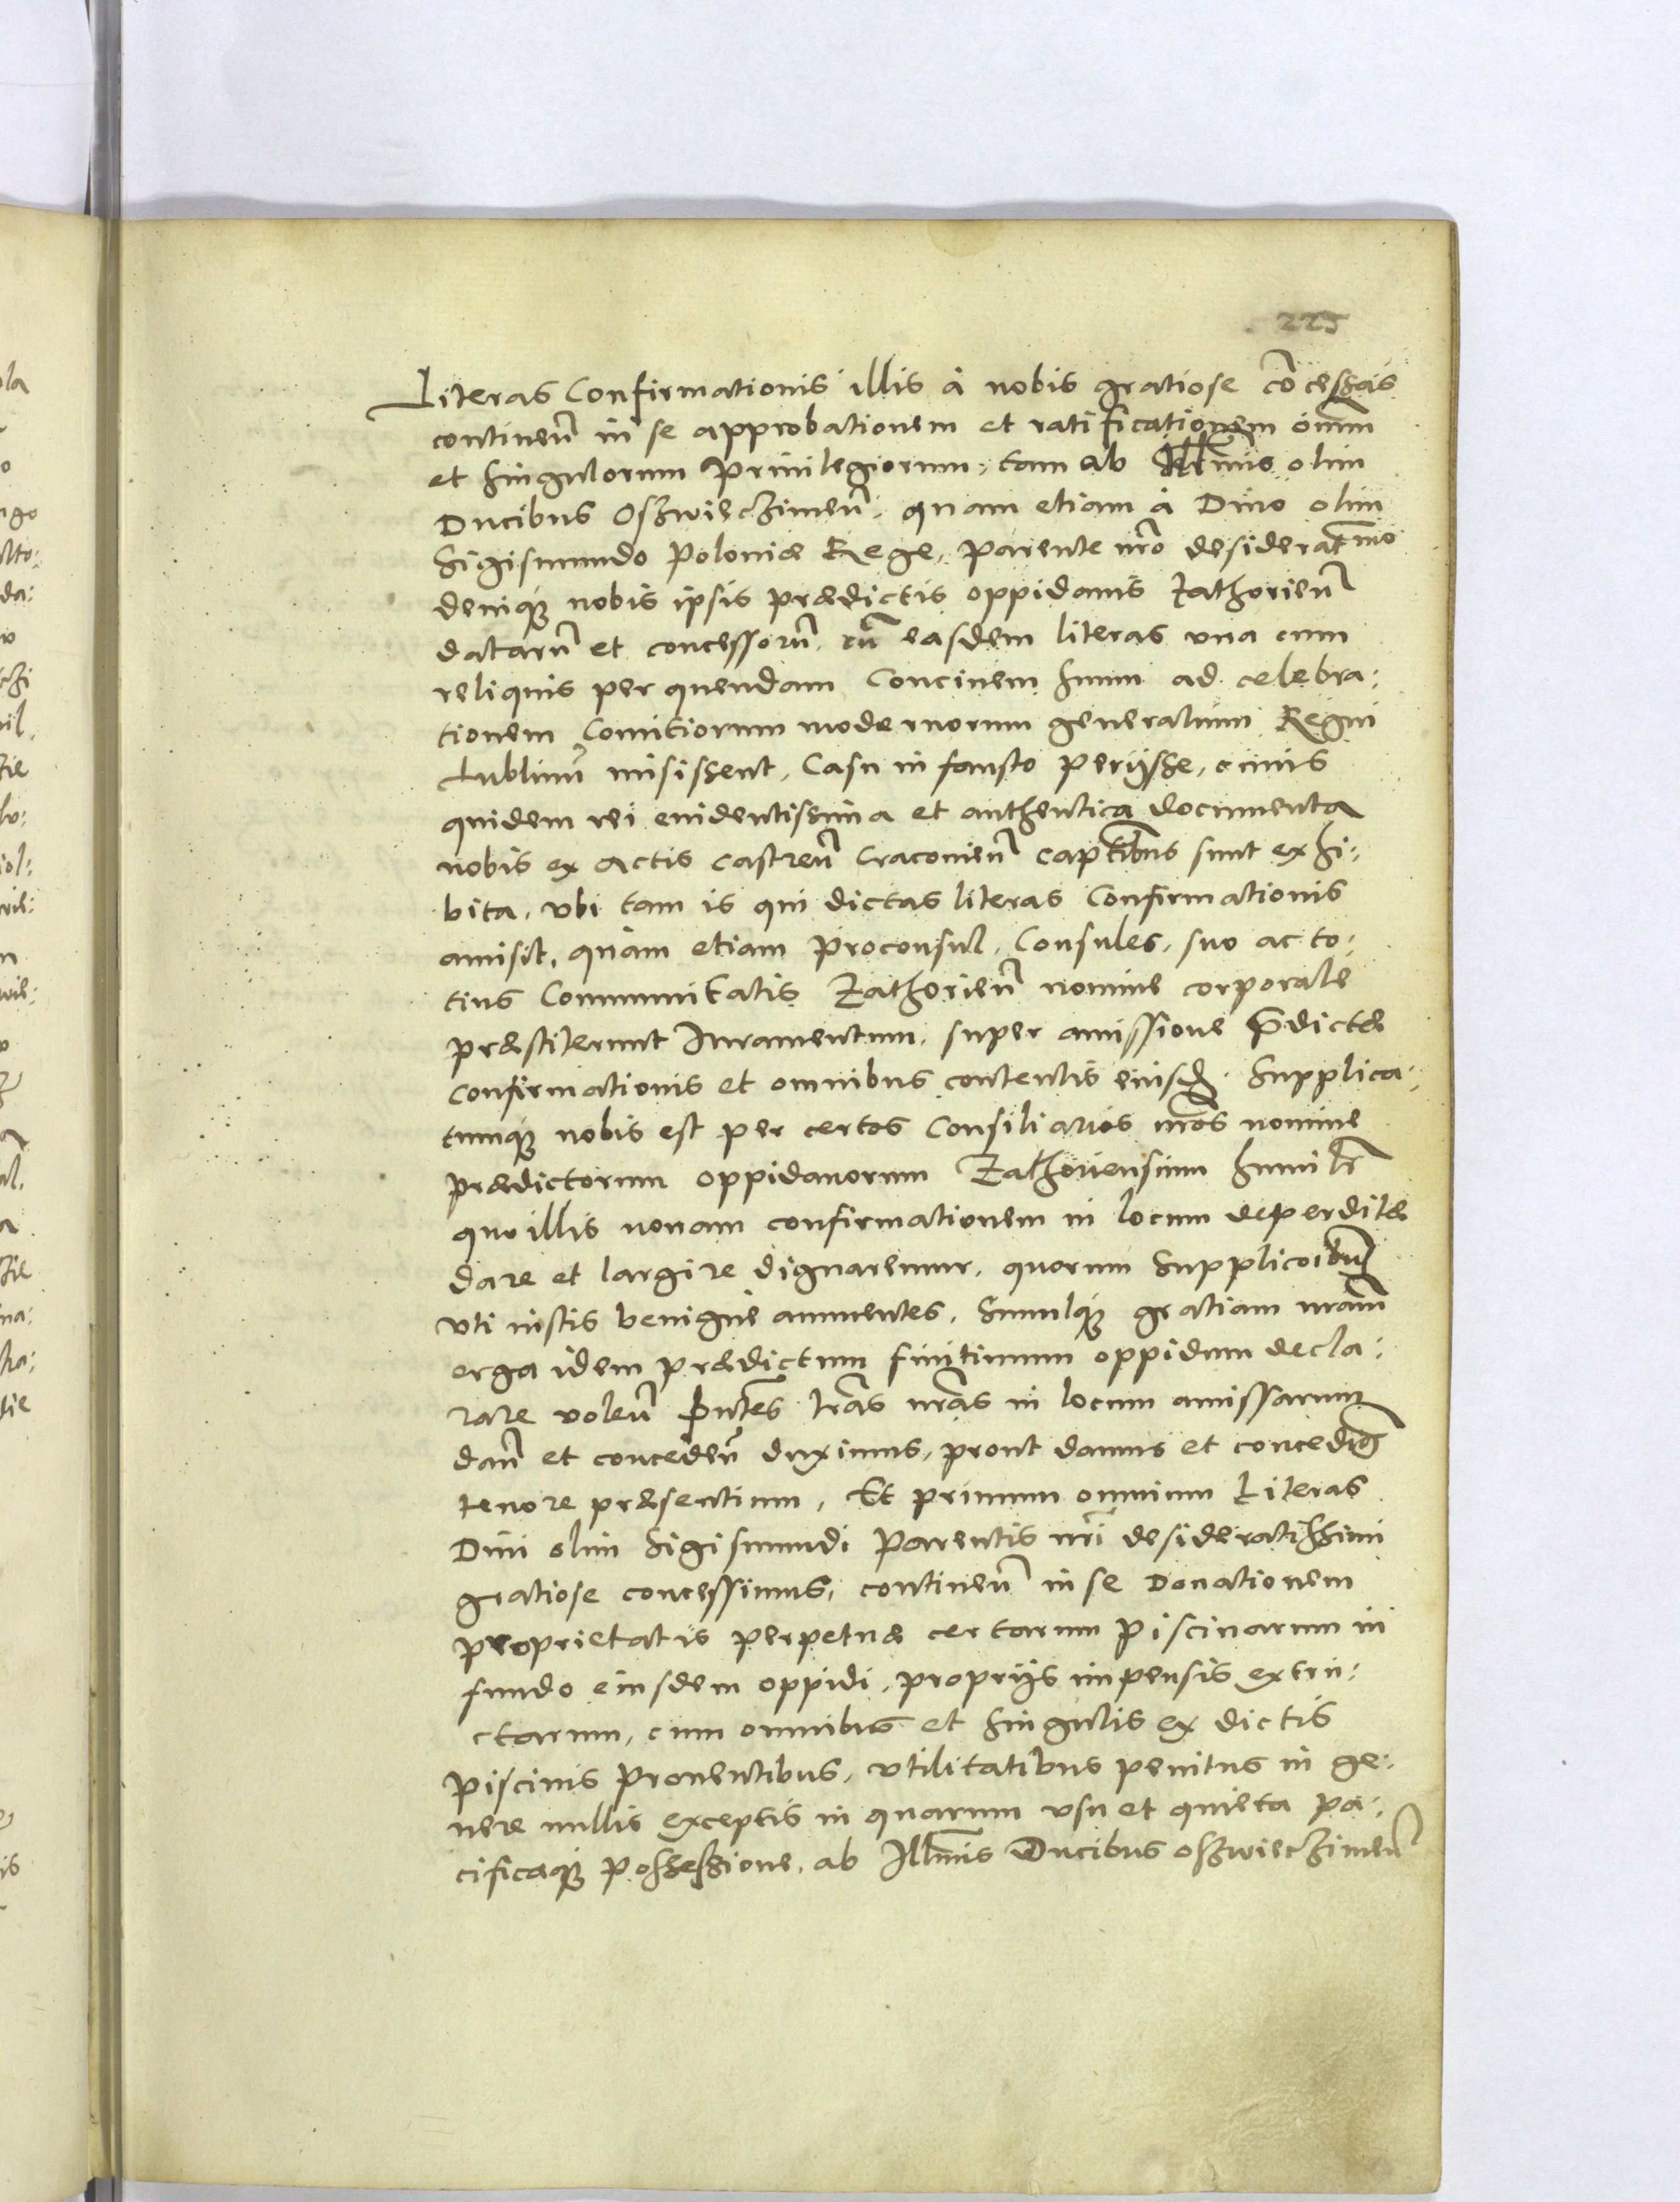 225
Literas Confirmationis illis à nobis gratiose cõcessas
continen̄ in se approbationem et ratificationem om̄m
et singulorum Priuilegiorum, tam ab Illmis olim
Ducibus Oszwieczimen̄, quam etiam à Diuo olim
Sigismundo Poloniæ Rege, Parente nr̄o desideratmo
deniq́ꝫ nobis ipsis prædictis oppidanis Zathorien̄
datarũ et concessorũ, cũ easdem literas vna cum
reliquis per quendam Conciuem suum ad celebra:
tionem Comitiorum modernorum generalium Regni
Lublinũ misissent, Casu infausto perijsse, cuius
quidem rei euidentissima et authentica documenta
nobis ex Actis castren̄ Cracouien̄ capitlibus sunt exhi:
bita, vbi tam is qui dictas literas Confirmationis
amisit, quàm etiam Proconsul, Consules, suo ac to:
tius Communitatis Zathorien̄ nomine corporale
præstiterunt Iuramentum, super amissione p̄dictæ
confirmationis et omnibus contentis eiusd. Supplica:
tumq́ꝫ nobis est per certos Consiliarios nr̄os nomine
prædictorum oppidanorum Zathoriensium humilr̄
quo illis nouam confirmationem in locum deperditæ
dare et largire dignaremur, quorum Supplicoĩbus
vti iustis benigné annuentes, Simulq́ꝫ gratiam nr̄am
erga idem prædictum finitimum oppidum decla:
rare volen̄ p̄ntes lr̄as nr̄as in locum amissarum
dan̄ et conceden̄ duximus, prout damus et concedim9
tenore præsentium, Et primum omnium Literas
Diui olim Sigismundi Parentis nr̄i desideratissimi
gratiose concessimus, continen̄ in se Donationem
proprietatis perpetuæ certarum Piscinarum in
fundo eiusdem oppidi, proprijs impensis extru:
ctarum, cum omnibus et singulis ex dictis
Piscinis Prouentibus, vtilitatibus penitus in ge:
nere nullis exceptis in quarum vsu et quieta pa:
cificaq́ꝫ Possessione, ab Illmis Ducibus oszwieczimen̄